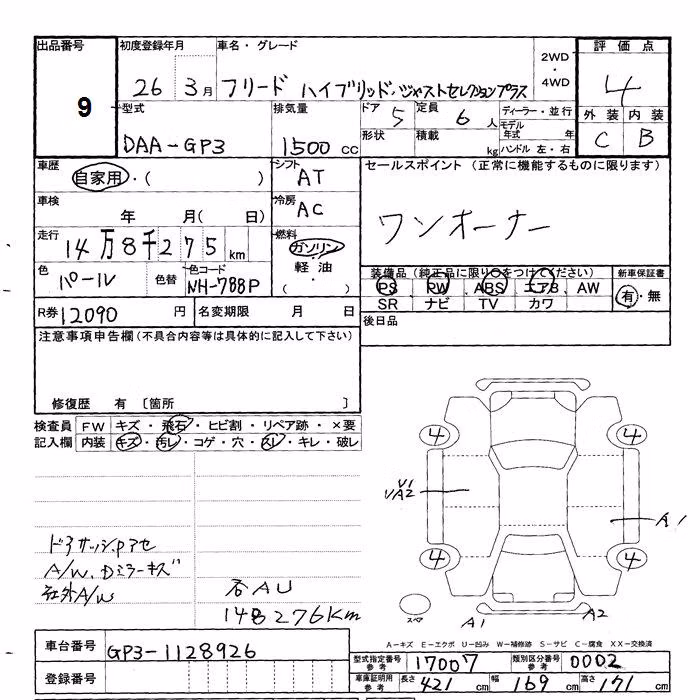 出品番号 9
初度登録年月 26 3月
車名・グレード フリード ハイブリッド・ジャストセレクションプラス
2WD・4WD
評価点 4
外装 内装
C B
型式 DAA-GP3
排気量 1500 CC
ドア 5 定員 6 人
形状 積載 kg
ディーラー・並行
モデル年式 年
ハンドル 左・右
車歴 自家用・( )
シフト AT
セールスポイント (正常に機能するものに限ります)
ワンオーナー
車検 年 月( 日)
冷房 AC
走行 14万8千275 km
燃料 ガソリン・軽油・( )
色 パール 色替 色コード NH-788P
装備品(純正品に限り○をつけてください) 新車保証書
PS PW ABS エアB AW 有・無
SR ナビ TV カワ
R券 12090 円 名変期限 月 日
後日品
注意事項申告欄(不具合内容等は具体的に記入して下さい)
修復歴 有 〔箇所 〕
検査員記入欄
FW キズ・飛石・ヒビ割・リペア跡・×要
内装 キズ・汚レ・コゲ・穴・スレ・キレ・破レ
4 4
V1
VA2
A1
4 4
ドアサッシPアセ
A/W、Dミラーキズ
社外A/W
否AU
148276Km
スペア
A1 A2
A-キズ E-エクボ U-凹み W-補修跡 S-サビ C-腐食 XX-交換済
車台番号 GP3-1128926
登録番号
型式指定番号参考 17007 類別区分番号参考 0002
車庫証明用参考 長さ 421 cm 幅 169 cm 高さ 171 cm